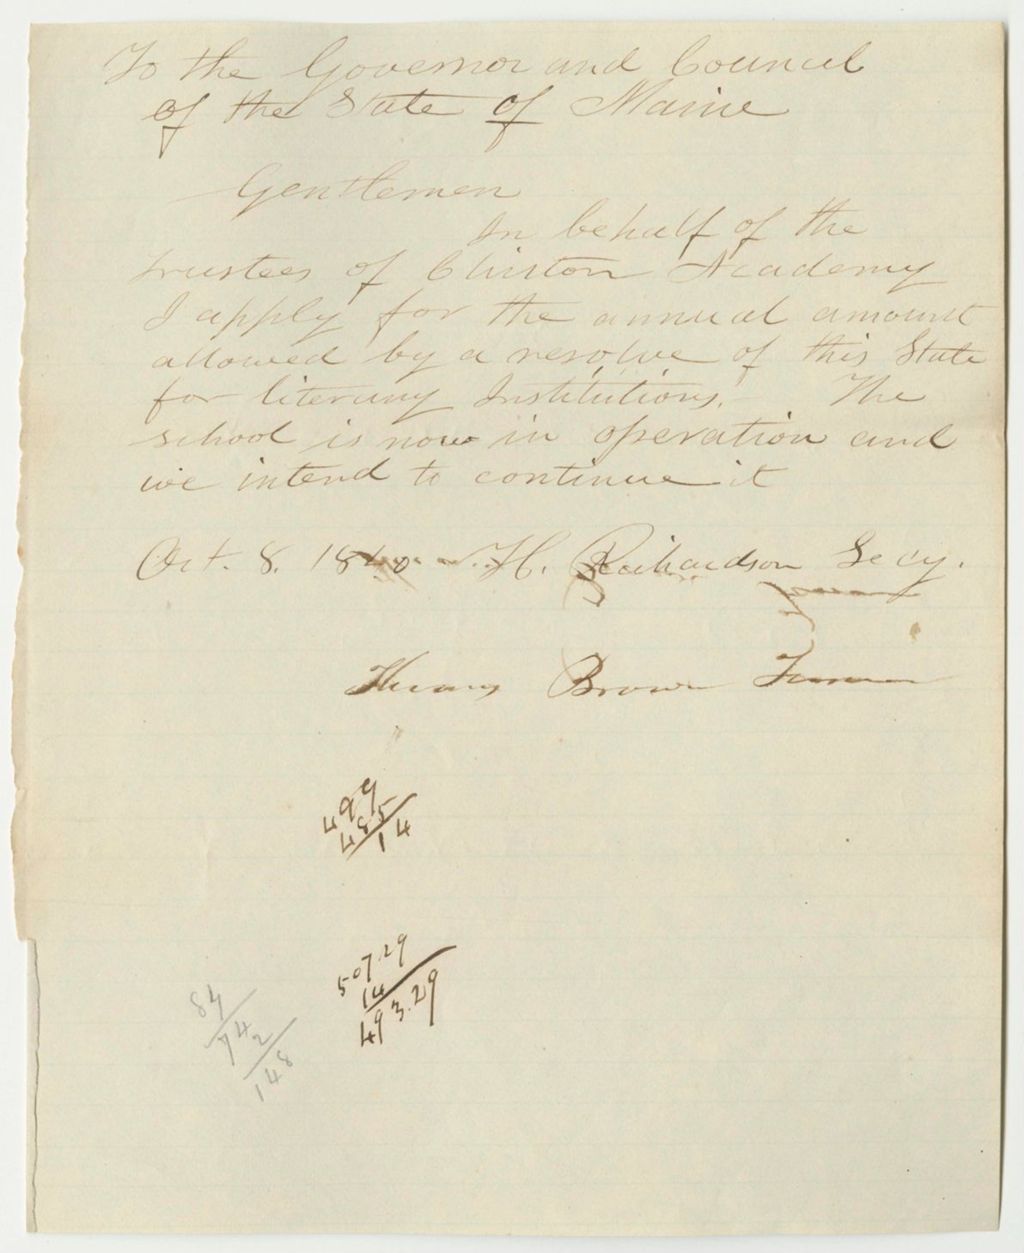 To the Governor and Council
of the State of Maine
Gentlemen
In behalf of the
trustees of Clinton Academy
I apply for the annual amount
allowed by a resolve of this State
for literary Institutions. The
school is now in operation and
we intend to continue it
Oct. 8. 1840 H. Richardson Secy.
Brown
499
485
14
507.29
14
493.29
74
2
148